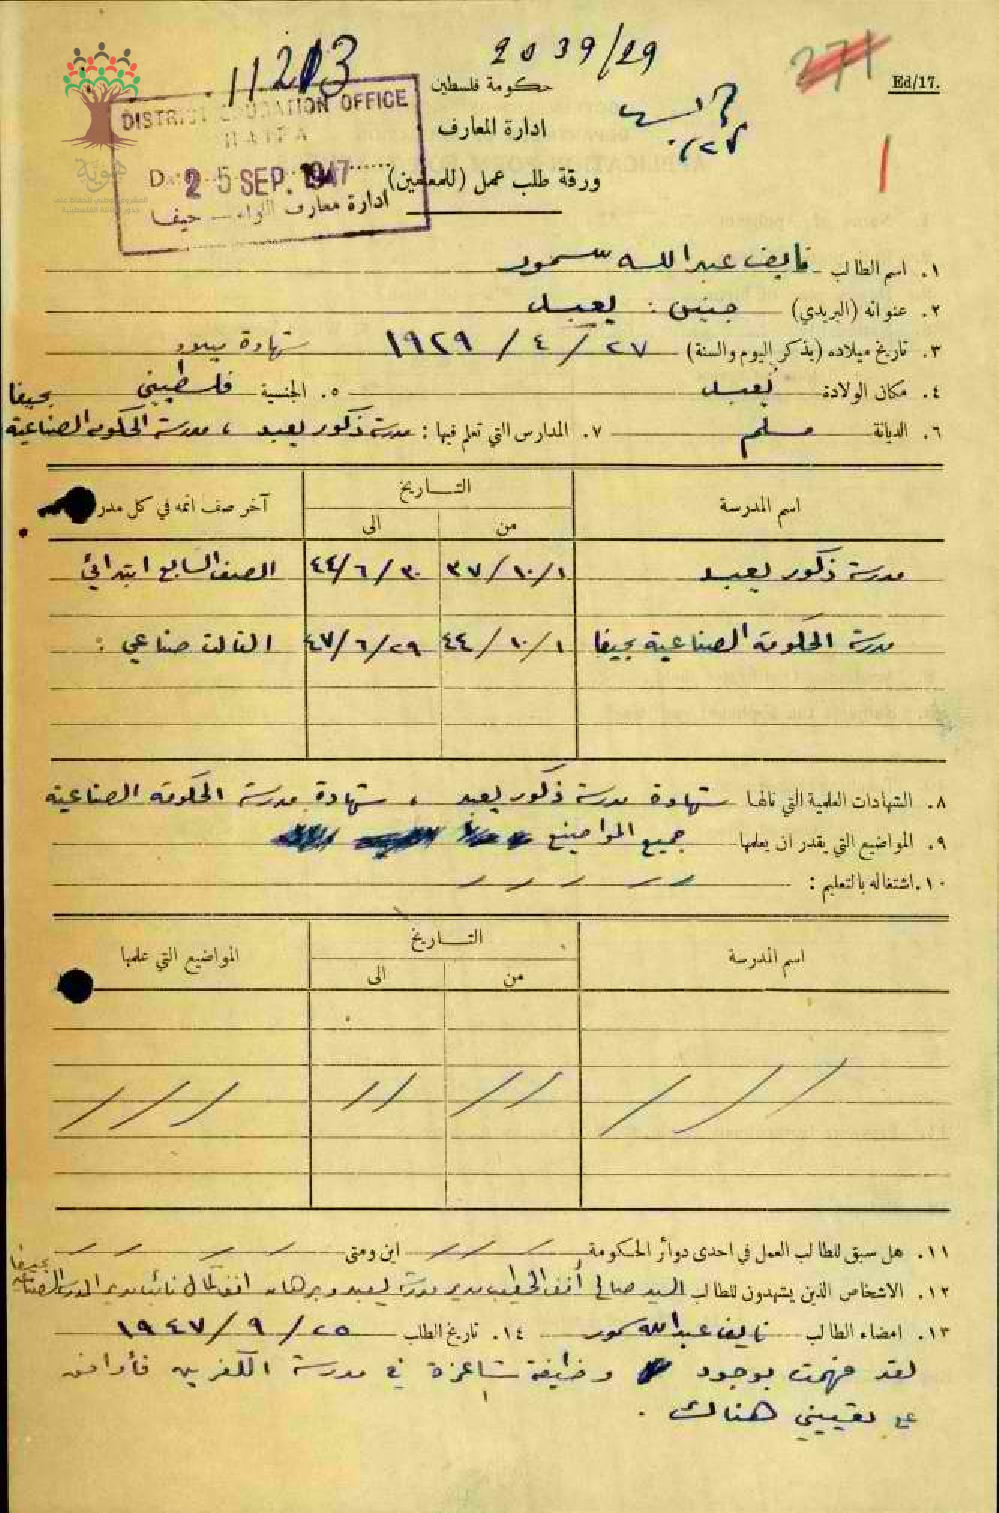 11213
2039/29
271
Ed/17.
حكومة فلسطين
ادارة المعارف
ورقة طلب عمل (للمعلمين)
DISTRICT EDUCATION OFFICE
HAIFA
25 SEP. 1947
ادارة معارف اللواء – حيفا
هوية
١. اسم الطالب نايف عبد الله سمور
٢. عنوانه (البريدي) جنين : يعبد
٣. تاريخ ميلاده (يذكر اليوم والسنة) ٢٧ / ٤ / ١٩٢٩ شهادة ميلاد
٤. مكان الولادة يعبد ٥. الجنسية فلسطيني
٦. الديانة مسلم ٧. المدارس التي تعلم فيها : مدرسة ذكور يعبد ، مدرسة الحكومة الصناعية بحيفا
اسم المدرسة التـاريخ آخر صف اتمه في كل مدرسة
من الى
مدرسة ذكور يعبد ١/١٠/٣٧ ٣٠/٦/٤٤ الصف السابع ابتدائي
مدرسة الحكومة الصناعية بحيفا ١/١٠/٤٤ ٢٩/٦/٤٧ الثالث صناعي :
٨. الشهادات العلمية التي نالها شهادة مدرسة ذكور يعبد ، شهادة مدرسة الحكومة الصناعية
٩. المواضيع التي يقدر ان يعلمها جميع المواضيع
١٠. اشتغاله بالتعليم :
اسم المدرسة التـاريخ المواضيع التي علمها
من الى
١١. هل سبق للطالب العمل في احدى دوائر الحكومة اين ومتى
١٢. الاشخاص الذين يشهدون للطالب السيد صالح أفندي الخطيب مدير مدرسة يعبد وبرهان افندي كمال نائب مدير المدرسة الصناعية بحيفا
١٣. امضاء الطالب نايف عبد الله سمور ١٤. تاريخ الطلب ٢٥ / ٩ / ١٩٤٧
لقد فهمت بوجود وظيفة شاغرة في مدرسة الكفرين فأوافق
على تعييني هناك .